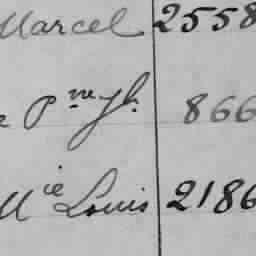 Marcel 2558
e Pne Jh. 866
Mie Louis 2186